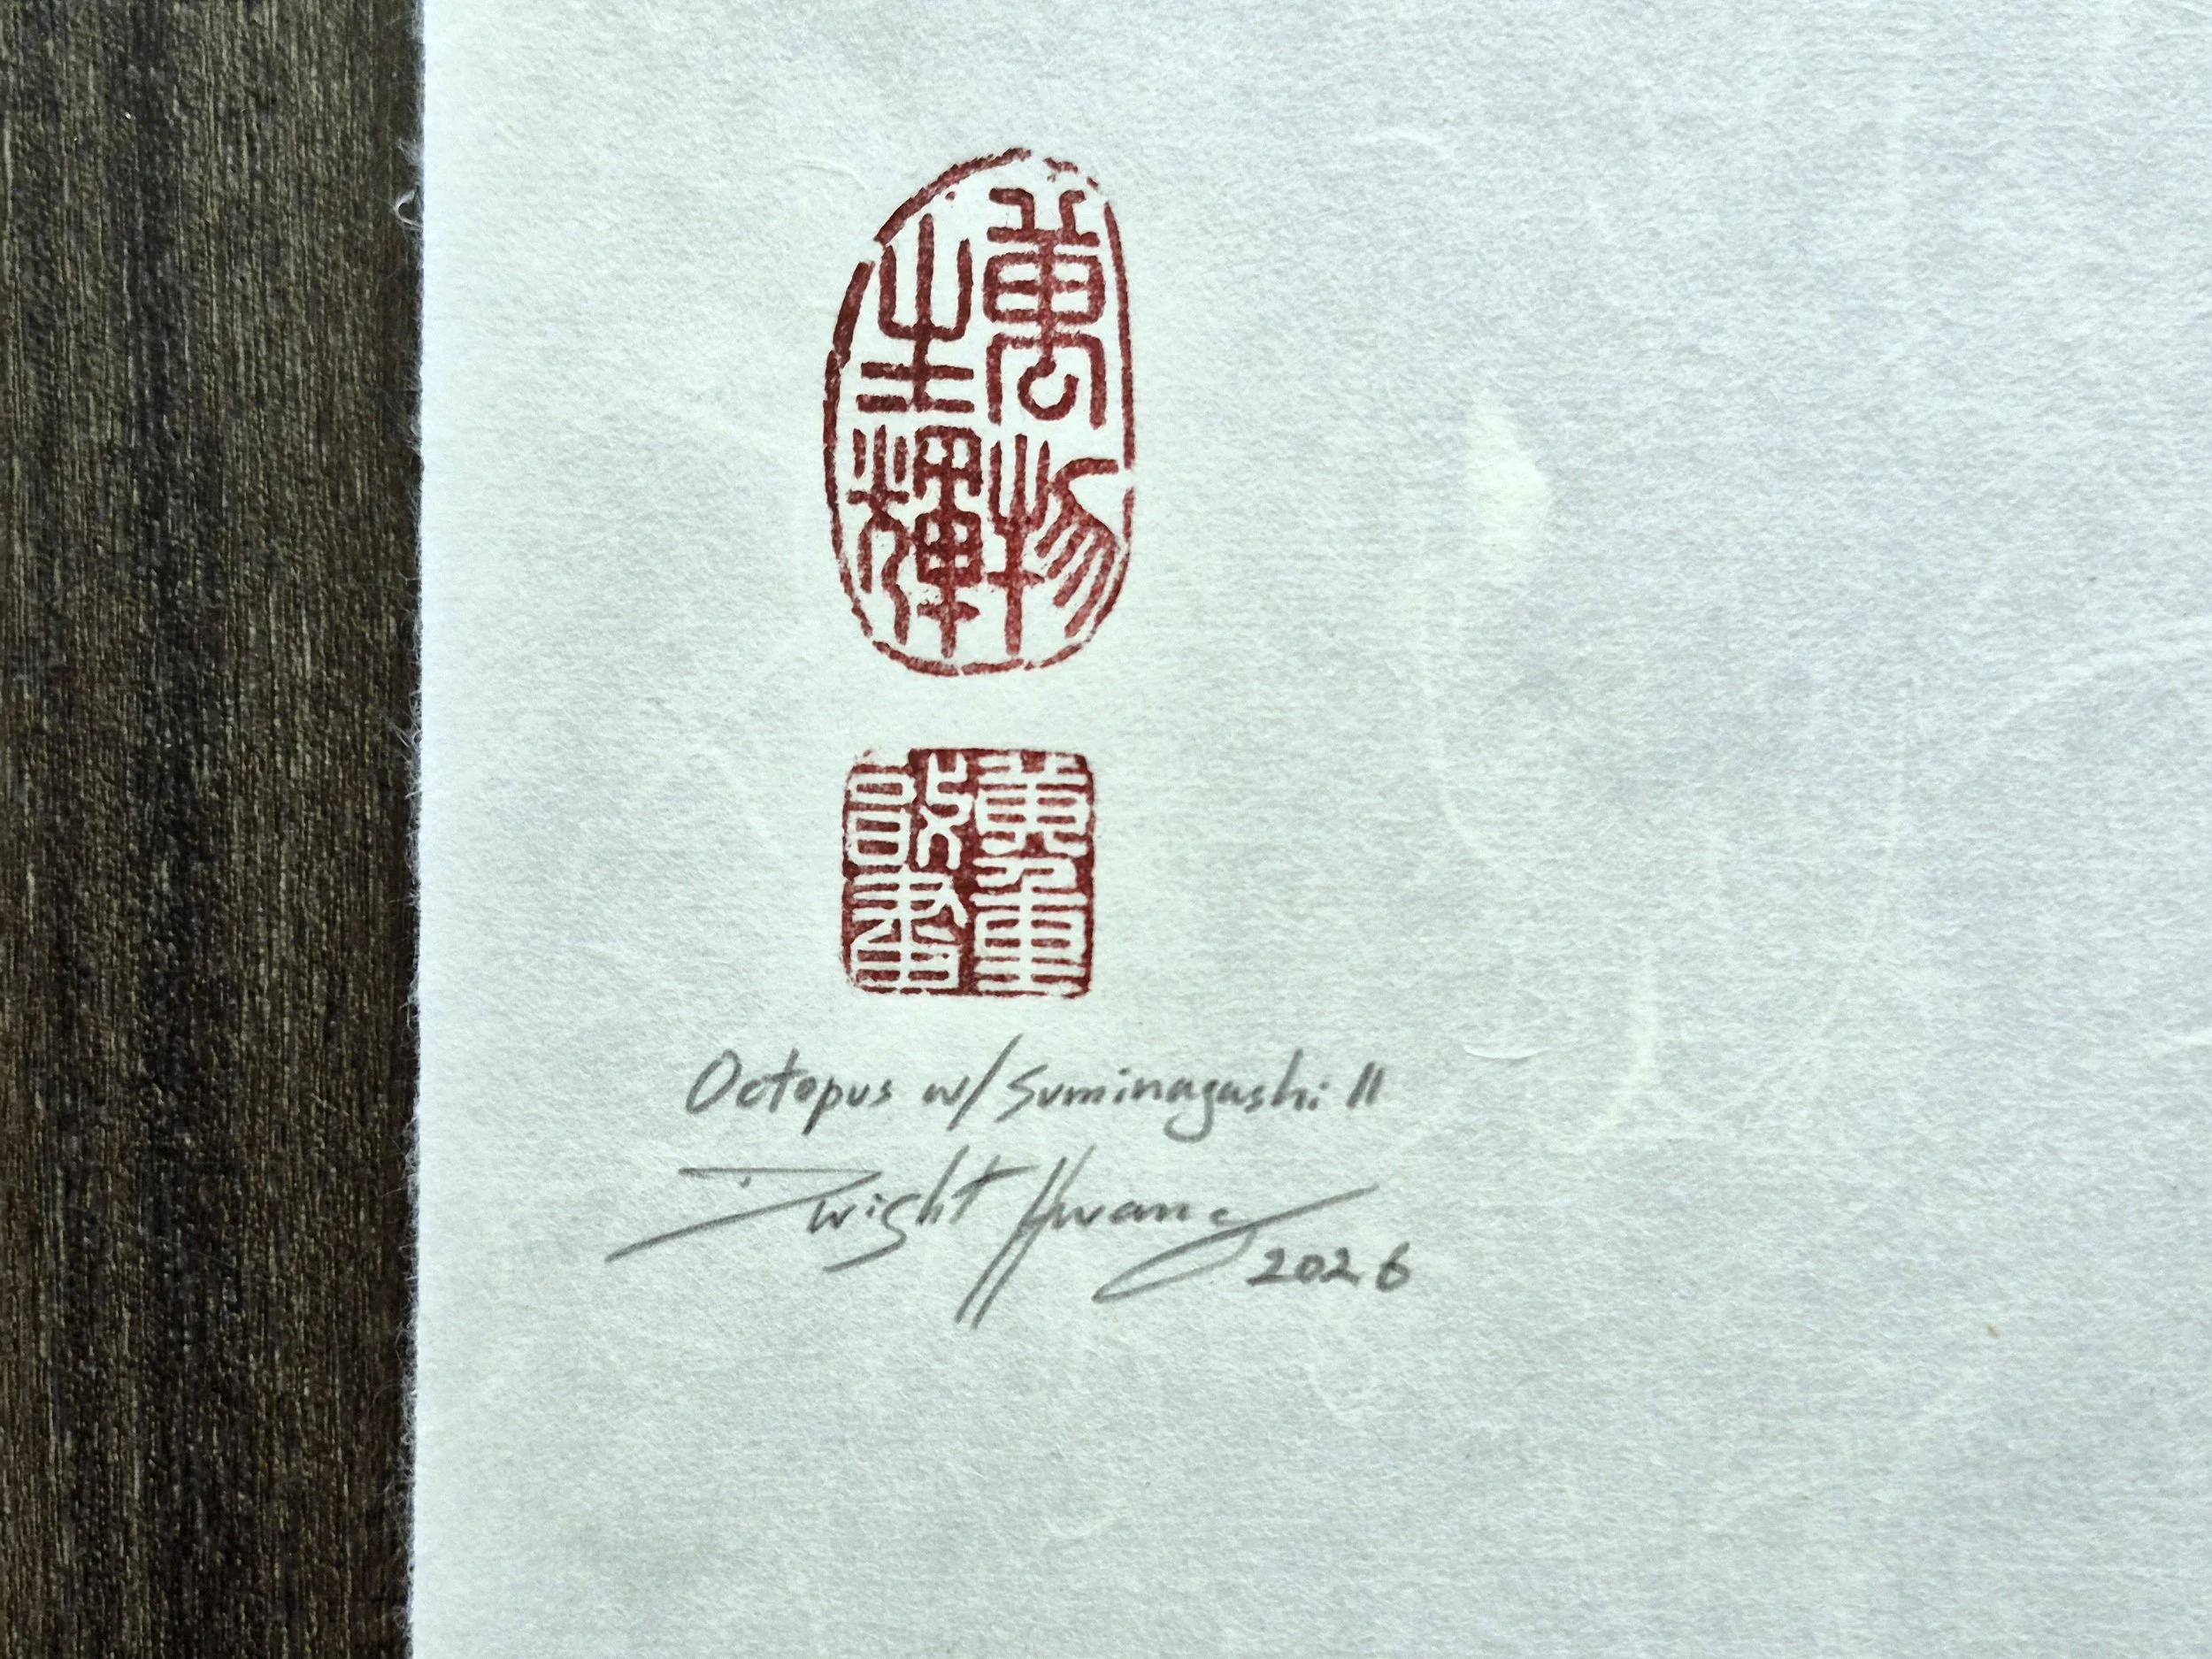 萬物
生輝
黃重
Octopus w/ Suminagashi II
Dwight Hwang
2026